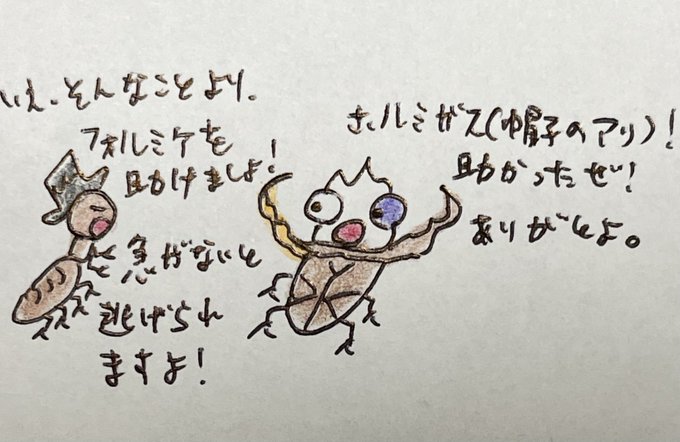 ホルミガス(帽子のアリ)!
助かったぜ!
ありがとよ。
いえ、そんなことより、
フォルミケを
助けましょ!
急がないと
逃げられ
ますよ!